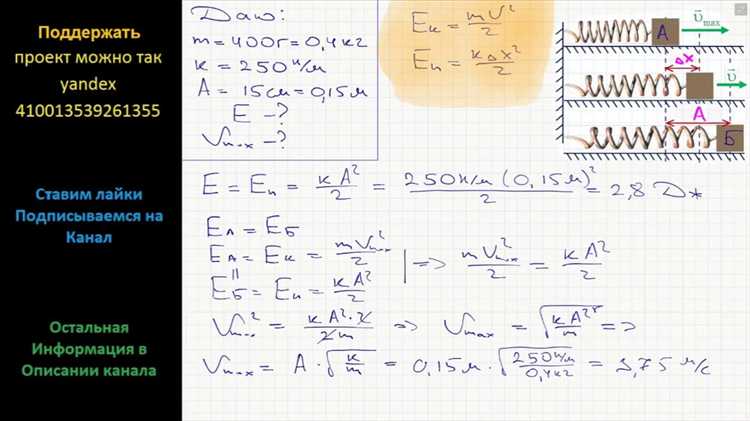 Поддержать
проект можно так
yandex
410013539261355
Ставим лайки
Подписываемся на
Канал
Остальная
Информация в
Описании канала
Дано:
m = 400г = 0,4кг
k = 250 н/м
A = 15см = 0,15м
E - ?
Vmax - ?
Eк = mV²/2
Eп = kΔx²/2
А υmax
Δx υ
A
Б
E = Eп = kA²/2 = 250н/м (0,15м)²/2 = 2,8 Дж
EА = EБ
EА = Eк = mVmax²/2 | => mVmax²/2 = kA²/2
EБ = Eп = kA²/2
Vmax² = kA²·2/2m => Vmax = √(kA²/m) =>
Vmax = A · √(k/m) = 0,15м · √(250н/м/0,4кг) = 3,75 м/с